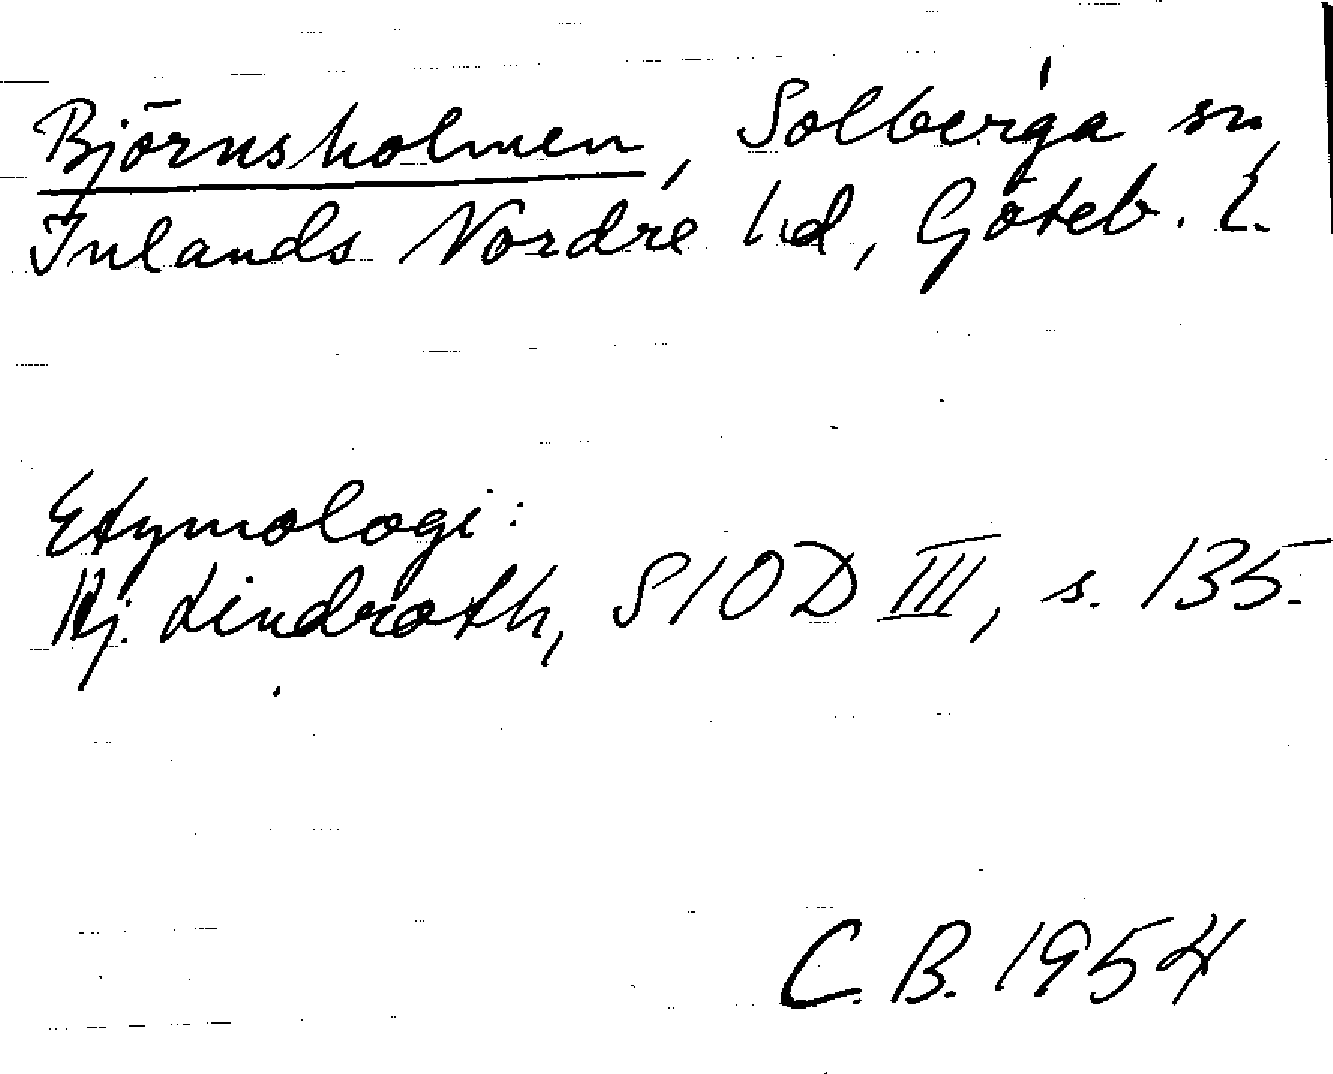 Björnsholmen, Solberga sn,
Inlands Nordre hd, Göteb. l.
Etymologi:
Hj. Lindroth, SIOD III, s. 135.
C. B. 1954